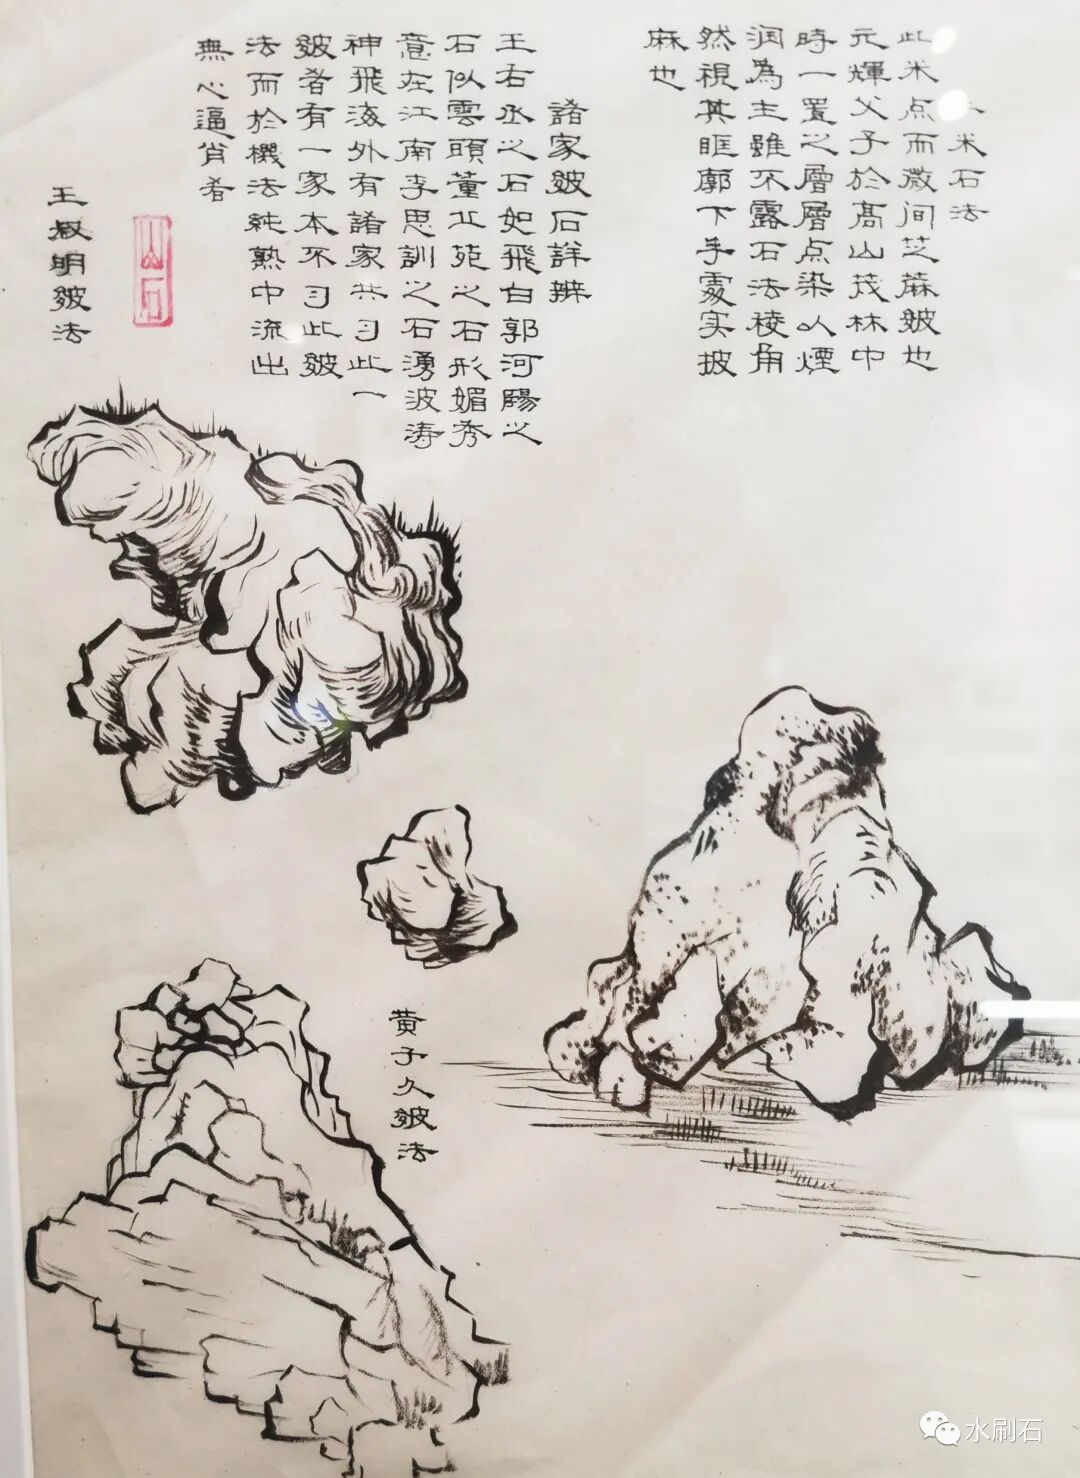 二米石法
此米点而微间芝蔴皴也
元輝父子於髙山茂林中
時一置之層層点染以煙
润為主雖不露石法棱角
然視其眶廓下手處实披
麻也
諸家皴石詳辨
王右丞之石如飛白郭河陽之
石似雲頭董北苑之石形媚秀
意在江南李思訓之石湧波涛
神飛海外有諸家共习此一
皴者有一家本不习此皴
法而於機法純熟中流出
無心逼肖者
山石
王叔明皴法
黄子久皴法
水刷石